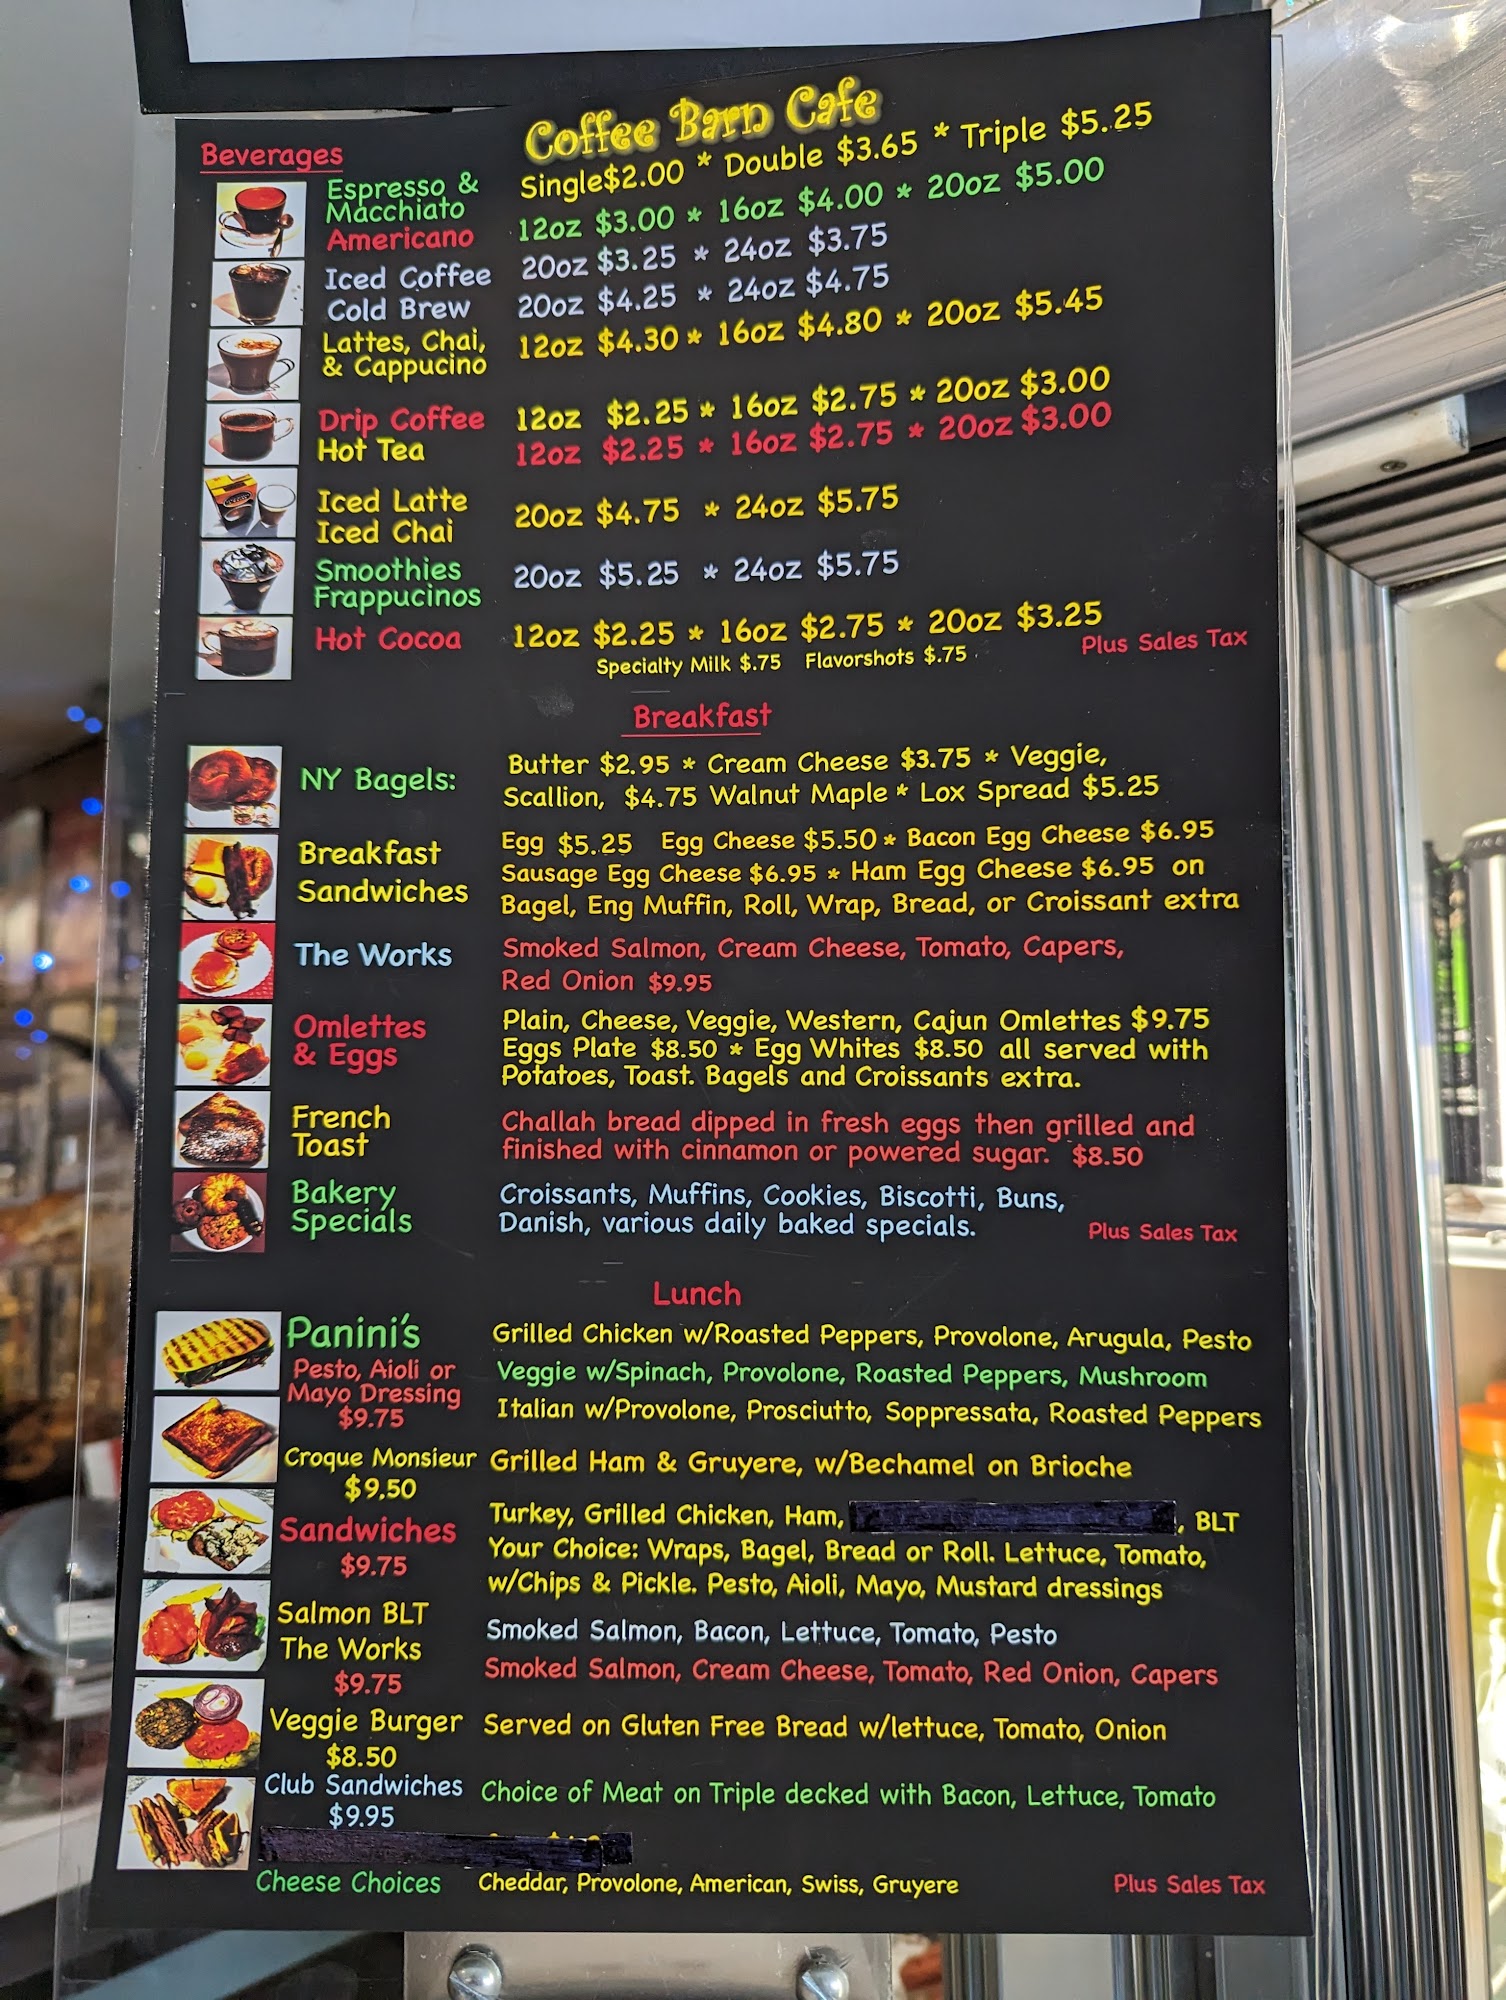 Coffee Barn Cafe
Beverages
Espresso & Macchiato
Single$2.00 * Double $3.65 * Triple $5.25
Americano
12oz $3.00 * 16oz $4.00 * 20oz $5.00
Iced Coffee
20oz $3.25 * 24oz $3.75
Cold Brew
20oz $4.25 * 24oz $4.75
Lattes, Chai,
& Cappucino
12oz $4.30 * 16oz $4.80 * 20oz $5.45
Drip Coffee
12oz $2.25 * 16oz $2.75 * 20oz $3.00
Hot Tea
12oz $2.25 * 16oz $2.75 * 20oz $3.00
Iced Latte
Iced Chai
20oz $4.75 * 24oz $5.75
Smoothies
Frappucinos
20oz $5.25 * 24oz $5.75
Hot Cocoa
12oz $2.25 * 16oz $2.75 * 20oz $3.25
Specialty Milk $.75 Flavorshots $.75
Plus Sales Tax
Breakfast
NY Bagels:
Butter $2.95 * Cream Cheese $3.75 * Veggie,
Scallion, $4.75 Walnut Maple * Lox Spread $5.25
Breakfast
Sandwiches
Egg $5.25 Egg Cheese $5.50 * Bacon Egg Cheese $6.95
Sausage Egg Cheese $6.95 * Ham Egg Cheese $6.95 on
Bagel, Eng Muffin, Roll, Wrap, Bread, or Croissant extra
The Works
Smoked Salmon, Cream Cheese, Tomato, Capers,
Red Onion $9.95
Omlettes
& Eggs
Plain, Cheese, Veggie, Western, Cajun Omlettes $9.75
Eggs Plate $8.50 * Egg Whites $8.50 all served with
Potatoes, Toast. Bagels and Croissants extra.
French
Toast
Challah bread dipped in fresh eggs then grilled and
finished with cinnamon or powered sugar. $8.50
Bakery
Specials
Croissants, Muffins, Cookies, Biscotti, Buns,
Danish, various daily baked specials.
Plus Sales Tax
Lunch
Panini's
Pesto, Aioli or
Mayo Dressing
$9.75
Grilled Chicken w/Roasted Peppers, Provolone, Arugula, Pesto
Veggie w/Spinach, Provolone, Roasted Peppers, Mushroom
Italian w/Provolone, Prosciutto, Soppressata, Roasted Peppers
Croque Monsieur
$9.50
Grilled Ham & Gruyere, w/Bechamel on Brioche
Sandwiches
$9.75
Turkey, Grilled Chicken, Ham, , BLT
Your Choice: Wraps, Bagel, Bread or Roll. Lettuce, Tomato,
w/Chips & Pickle. Pesto, Aioli, Mayo, Mustard dressings
Salmon BLT
Smoked Salmon, Bacon, Lettuce, Tomato, Pesto
The Works
$9.75
Smoked Salmon, Cream Cheese, Tomato, Red Onion, Capers
Veggie Burger
$8.50
Served on Gluten Free Bread w/lettuce, Tomato, Onion
Club Sandwiches
$9.95
Choice of Meat on Triple decked with Bacon, Lettuce, Tomato
Cheese Choices
Cheddar, Provolone, American, Swiss, Gruyere
Plus Sales Tax